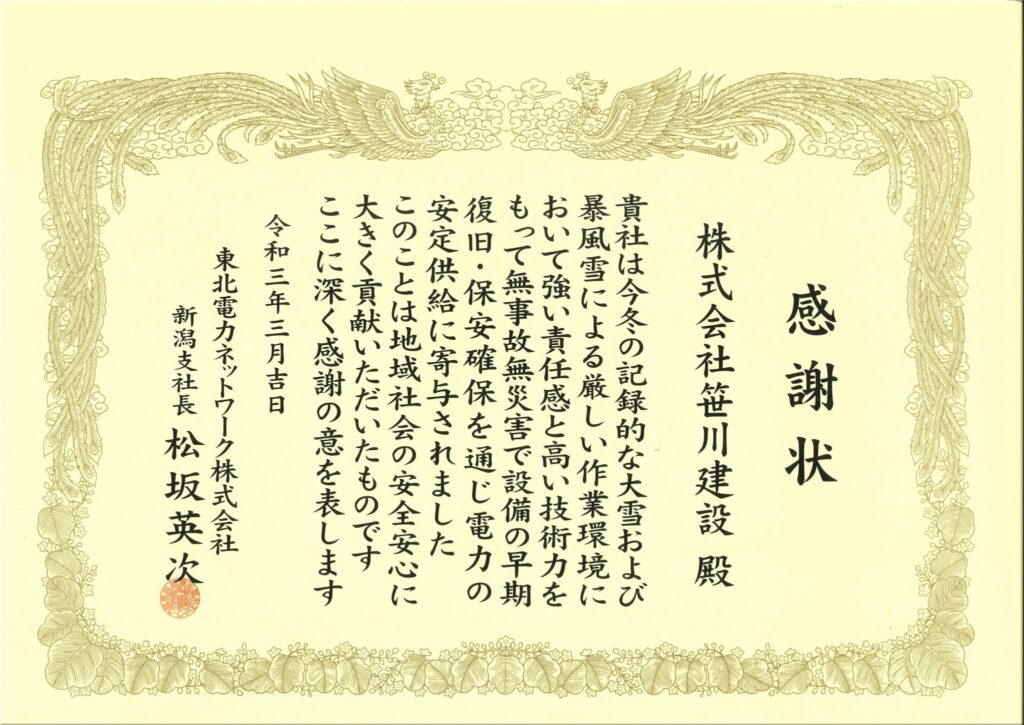 感謝状
株式会社笹川建設 殿
貴社は今冬の記録的な大雪および
暴風雪による厳しい作業環境に
おいて強い責任感と高い技術力を
もって無事故無災害で設備の早期
復旧・保安確保を通じ電力の
安定供給に寄与されました
このことは地域社会の安全安心に
大きく貢献いただいたものです
ここに深く感謝の意を表します
令和三年三月吉日
東北電力ネットワーク株式会社
新潟支社長 松坂英次